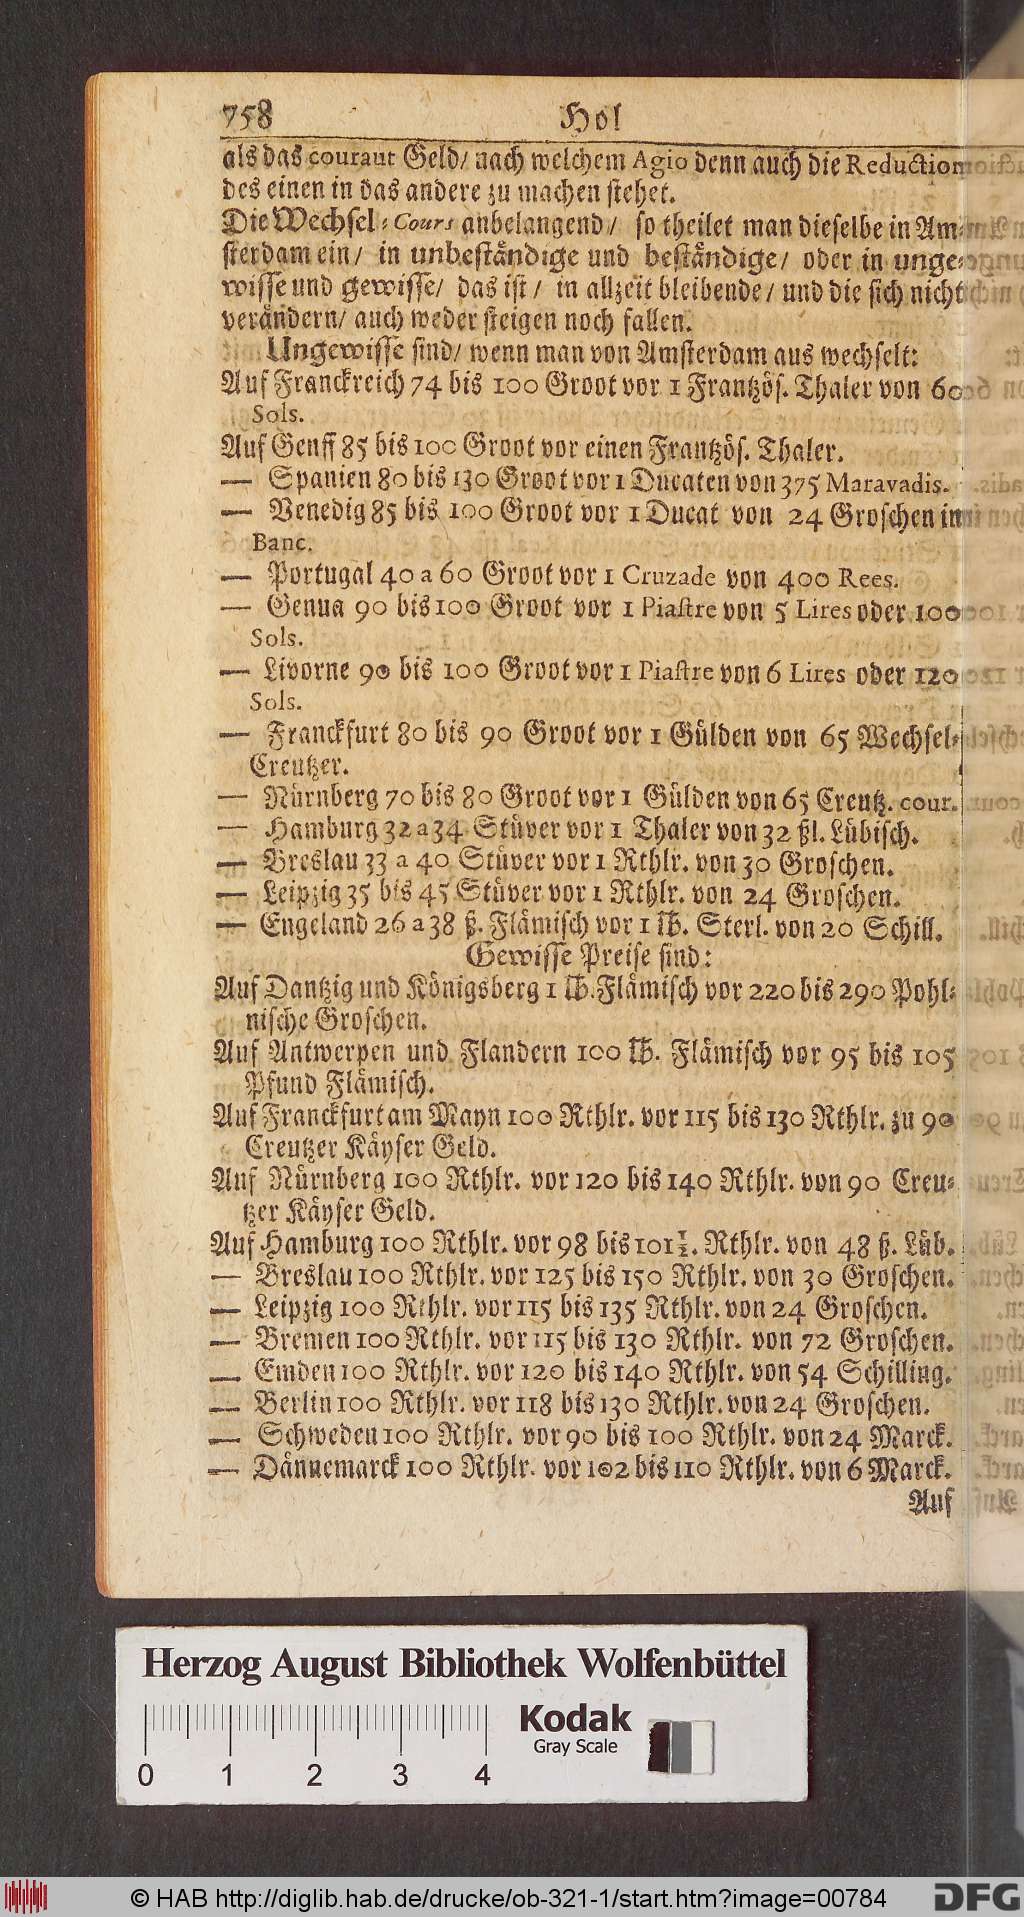 758 Hol
als das couraut Geld/ nach welchem Agio denn auch die Reduction
des einen in das andere zu machen stehet.
Die Wechsel-Cours anbelangend/ so theilet man dieselbe in Am-
sterdam ein/ in unbeständige und beständige/ oder in unge-
wisse und gewisse/ das ist/ in allzeit bleibende/ und die sich nicht
verändern/ auch weder steigen noch fallen.
Ungewisse sind/ wenn man von Amsterdam aus wechselt:
Auf Franckreich 74 bis 100 Groot vor 1 Frantzös. Thaler von 60
Sols.
Auf Genff 85 bis 100 Groot vor einen Frantzös. Thaler.
— Spanien 80 bis 130 Groot vor 1 Ducaten von 375 Maravadis.
— Venedig 85 bis 100 Groot vor 1 Ducat von 24 Groschen in
Banc.
— Portugal 40 a 60 Groot vor 1 Cruzade von 400 Rees.
— Genua 90 bis 100 Groot vor 1 Piastre von 5 Lires oder 100
Sols.
— Livorne 90 bis 100 Groot vor 1 Piastre von 6 Lires oder 120
Sols.
— Franckfurt 80 bis 90 Groot vor 1 Gülden von 65 Wechsel-
Creutzer.
— Nürnberg 70 bis 80 Groot vor 1 Gülden von 65 Creutz. cour.
— Hamburg 32 a 34 Stüver vor 1 Thaler von 32 ßl. Lübisch.
— Breslau 33 a 40 Stüver vor 1 Rthlr. von 30 Groschen.
— Leipzig 35 bis 45 Stüver vor 1 Rthlr. von 24 Groschen.
— Engeland 26 a 38 ß. Flämisch vor 1 ℔. Sterl. von 20 Schill.
Gewisse Preise sind:
Auf Dantzig und Königsberg 1 ℔. Flämisch vor 220 bis 290 Pohl-
nische Groschen.
Auf Antwerpen und Flandern 100 ℔. Flämisch vor 95 bis 105
Pfund Flämisch.
Auf Franckfurt am Mayn 100 Rthlr. vor 115 bis 130 Rthlr. zu 90
Creutzer Käyser Geld.
Auf Nürnberg 100 Rthlr. vor 120 bis 140 Rthlr. von 90 Creu-
tzer Käyser Geld.
Auf Hamburg 100 Rthlr. vor 98 bis 101½. Rthlr. von 48 ß. Lüb.
— Breslau 100 Rthlr. vor 125 bis 150 Rthlr. von 30 Groschen.
— Leipzig 100 Rthlr. vor 115 bis 135 Rthlr. von 24 Groschen.
— Bremen 100 Rthlr. vor 115 bis 130 Rthlr. von 72 Groschen.
— Emden 100 Rthlr. vor 120 bis 140 Rthlr. von 54 Schilling.
— Berlin 100 Rthlr. vor 118 bis 130 Rthlr. von 24 Groschen.
— Schweden 100 Rthlr. vor 90 bis 100 Rthlr. von 24 Marck.
— Dännemarck 100 Rthlr. vor 102 bis 110 Rthlr. von 6 Marck.
Auf
Herzog August Bibliothek Wolfenbüttel
Kodak
Gray Scale
0 1 2 3 4
© HAB http://diglib.hab.de/drucke/ob-321-1/start.htm?image=00784
DFG